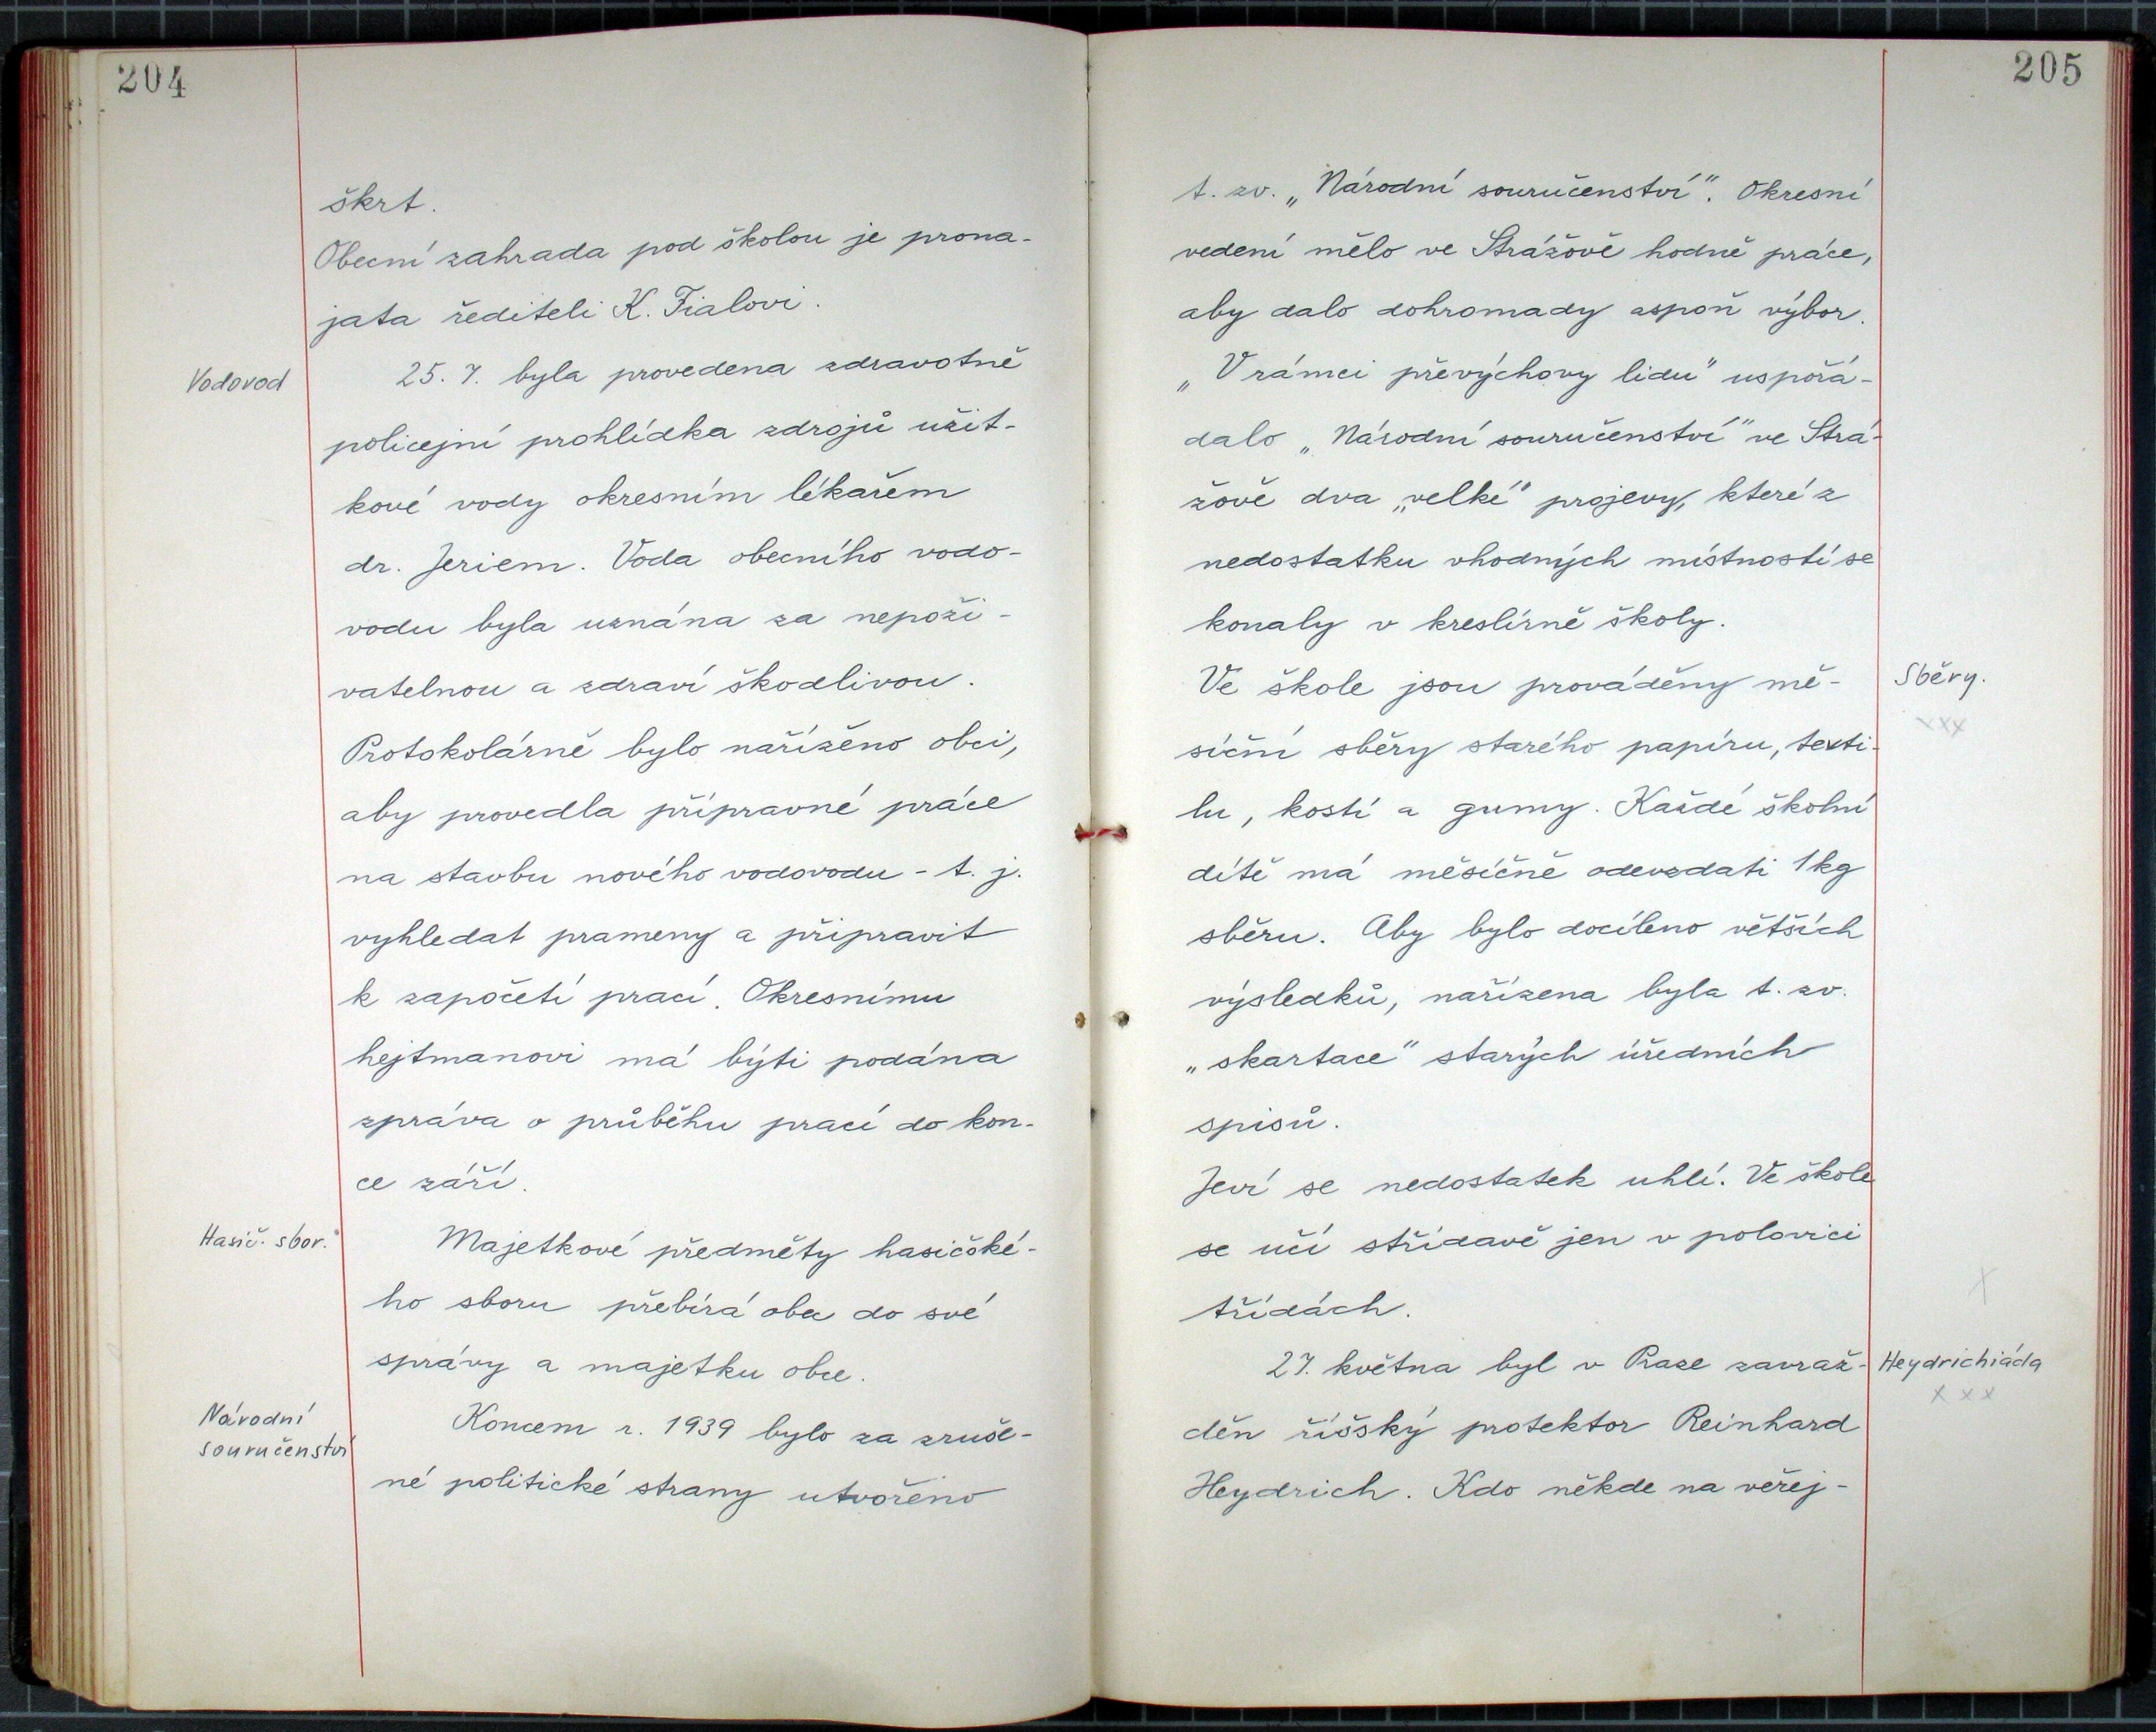 204
škrt.
Obecní zahrada pod školou je prona-
jata řediteli K. Fialovi.
Vodovod
25. 7. byla provedena zdravotně
policejní prohlídka zdrojů užit-
kové vody okresním lékařem
dr. Jeriem. Voda obecního vodo-
vodu byla uznána za nepoži-
vatelnou a zdraví škodlivou.
Protokolárně bylo nařízěno obci,
aby provedla přípravné práce
na stavbu nového vodovodu - t. j.
vyhledat prameny a připravit
k započetí prací. Okresnímu
hejtmanovi má býti podána
zpráva o průběhu prací do kon-
ce září.
Hasič. sbor.
Majetkové předměty hasičské-
ho sboru přebírá obec do své
správy a majetku obce.
Národní
souručenství
Koncem r. 1939 bylo za zruše-
né politické strany utvořeno
205
t. zv. „Národní souručenství". Okresní
vedení mělo ve Strážově hodně práce,
aby dalo dohromady aspoň výbor.
„V rámci převýchovy lidu" uspořá-
dalo „Národní souručenství" ve Strá-
žově dva „velké" projevy, které z
nedostatku vhodných místností se
konaly v kreslírně školy.
Sběry.
xxx
Ve škole jsou prováděny mě-
síční sběry starého papíru, texti-
lu, kostí a gumy. Každé školní
dítě má měsíčně odevzdati 1 kg
sběru. Aby bylo docíleno větších
výsledků, nařízena byla t. zv.
„skartace" starých úředních
spisů.
Jeví se nedostatek uhlí. Ve škole
se učí střídavě jen v polovici
třídách.
x
Heydrichiáda
x x x
27. května byl v Praze zavraž-
děn říšský protektor Reinhard
Heydrich. Kdo někde na veřej-